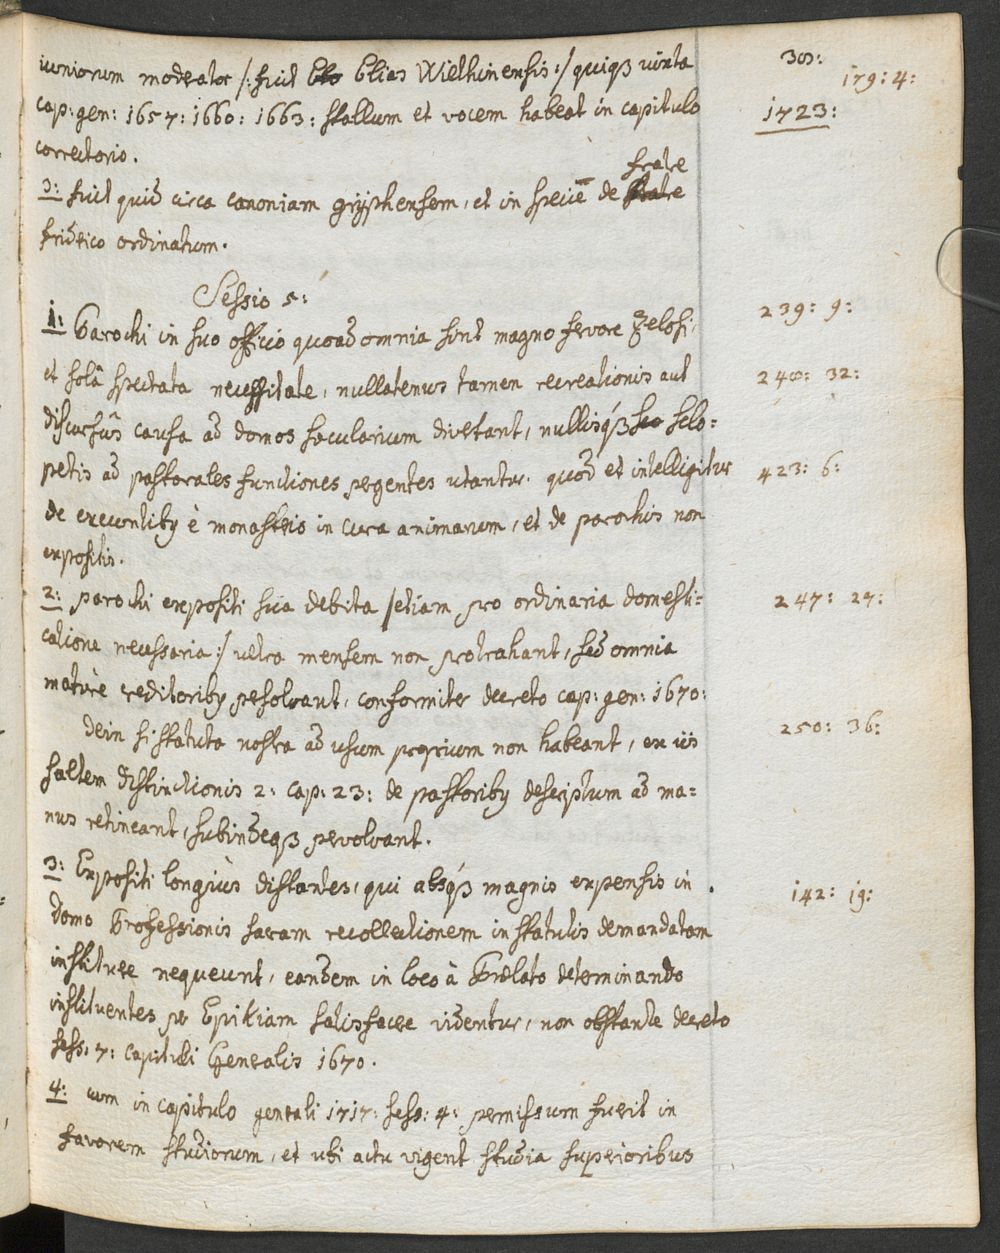 iuniorum moderator /: fuit Elias Wiethinensis :/ quiqß iuxta
cap: gen: 1657: 1660: 1663: stallum et vocem habeat in capitulo
correctorio.
fratre
3: fuit quid circa canoniam gryphensem, et in specie de
ordinatum.
Sessio 5:
1: Parochi in suo officio quoad omnia sint magno fervore zelosi,
et solâ spectata necessitate, nullatenus tamen recreationis aut
discursûs causa ad domos saecularium divertant, nullisqß sclo=
petis ad pastorales functiones pergentes utantur. quod et intelligitur
de exeuntiby è monasterio in cura animarum, et de parochis non
expositis.
2: parochi expositi sua debita /etiam pro ordinaria domesti=
catione necessaria :/ ultra mensem non protrahant, sed omnia
maturè creditoriby persolvant, conformiter decreto cap: gen: 1670:
dein si statuta nostra ad usum proprium non habeant, ex iis
saltem distinctionis 2: cap: 23: de pastoriby descriptum ad ma=
nus retineant, subindeqß pervolvant.
3: Expositi longiùs distantes, qui absqß magnis expensis in
domo Professionis sacram recollectionem in statutis demandatam
instituere nequeunt, eandem in loco à Praelato determinando
instituentes per Epikiam satisfacere videntur, non obstante decreto
sess: 7: capituli Generalis 1670.
4: cum in capitulo generali 1717: sess: 4: permissum fuerit in
favorem studiorum, et ubi actu vigent studia superioribus
30:
179: 4:
1723:
239: 9:
240: 32:
423: 6:
247: 27:
250: 36:
142: 19: